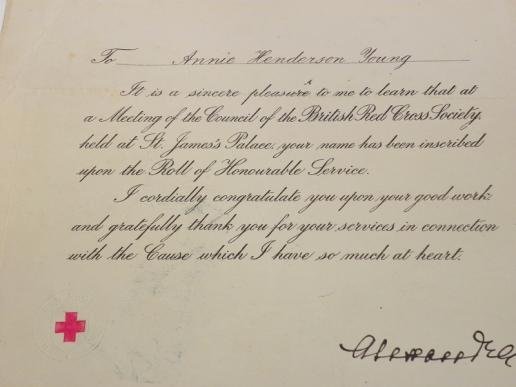 To Annie Henderson Young
It is a sincere pleasure to me to learn that at
a Meeting of the Council of the British Red Cross Society,
held at St. James's Palace, your name has been inscribed
upon the Roll of Honourable Service.
I cordially congratulate you upon your good work
and gratefully thank you for your services in connection
with the Cause which I have so much at heart.